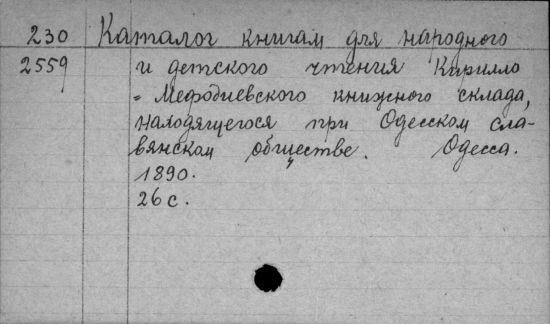 230 Каталог книгам для народного
2559 и детского чтения Кирилло
- Мефодиевского книжного склада,
находящегося при Одесском сла-
вянском обществе. Одесса.
1890.
26 с.